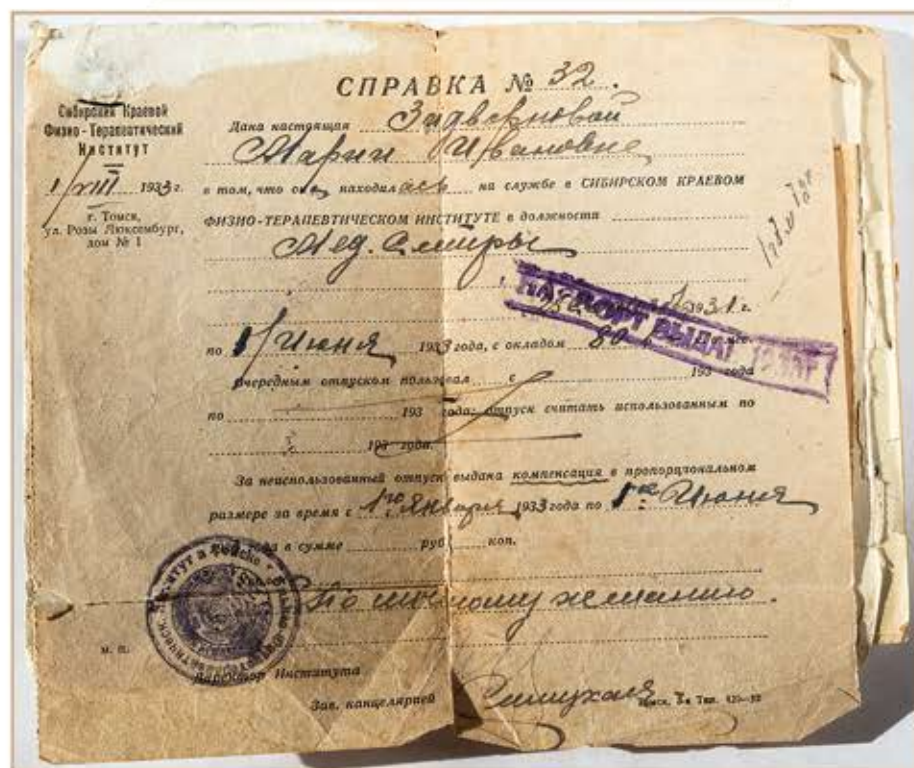 СПРАВКА № 32.
Сибирский Краевой
Физио-Терапевтический
Институт
1/VIII 1933 г.
г. Томск,
ул. Розы Люксембург,
дом № 1
Дана настоящая
Марии Ивановне
в том, что она находилась на службе в СИБИРСКОМ КРАЕВОМ
ФИЗИО-ТЕРАПЕВТИЧЕСКОМ ИНСТИТУТЕ в должности
Мед. Сестры
1931 г.
ПАСПОРТ ВЫДАН
по 1/Июня 1933 года, с окладом 80
очередным отпуском пользовал с 193 года
по 193 года; отпуск считать использованным по
193 года.
За неиспользованный отпуск выдана компенсация в пропорциональном
размере за время с 1го Января 1933 года по 1ое Июня
года в сумме руб. коп.
По личному желанию.
м. п.
Директор Института
Зав. канцелярией